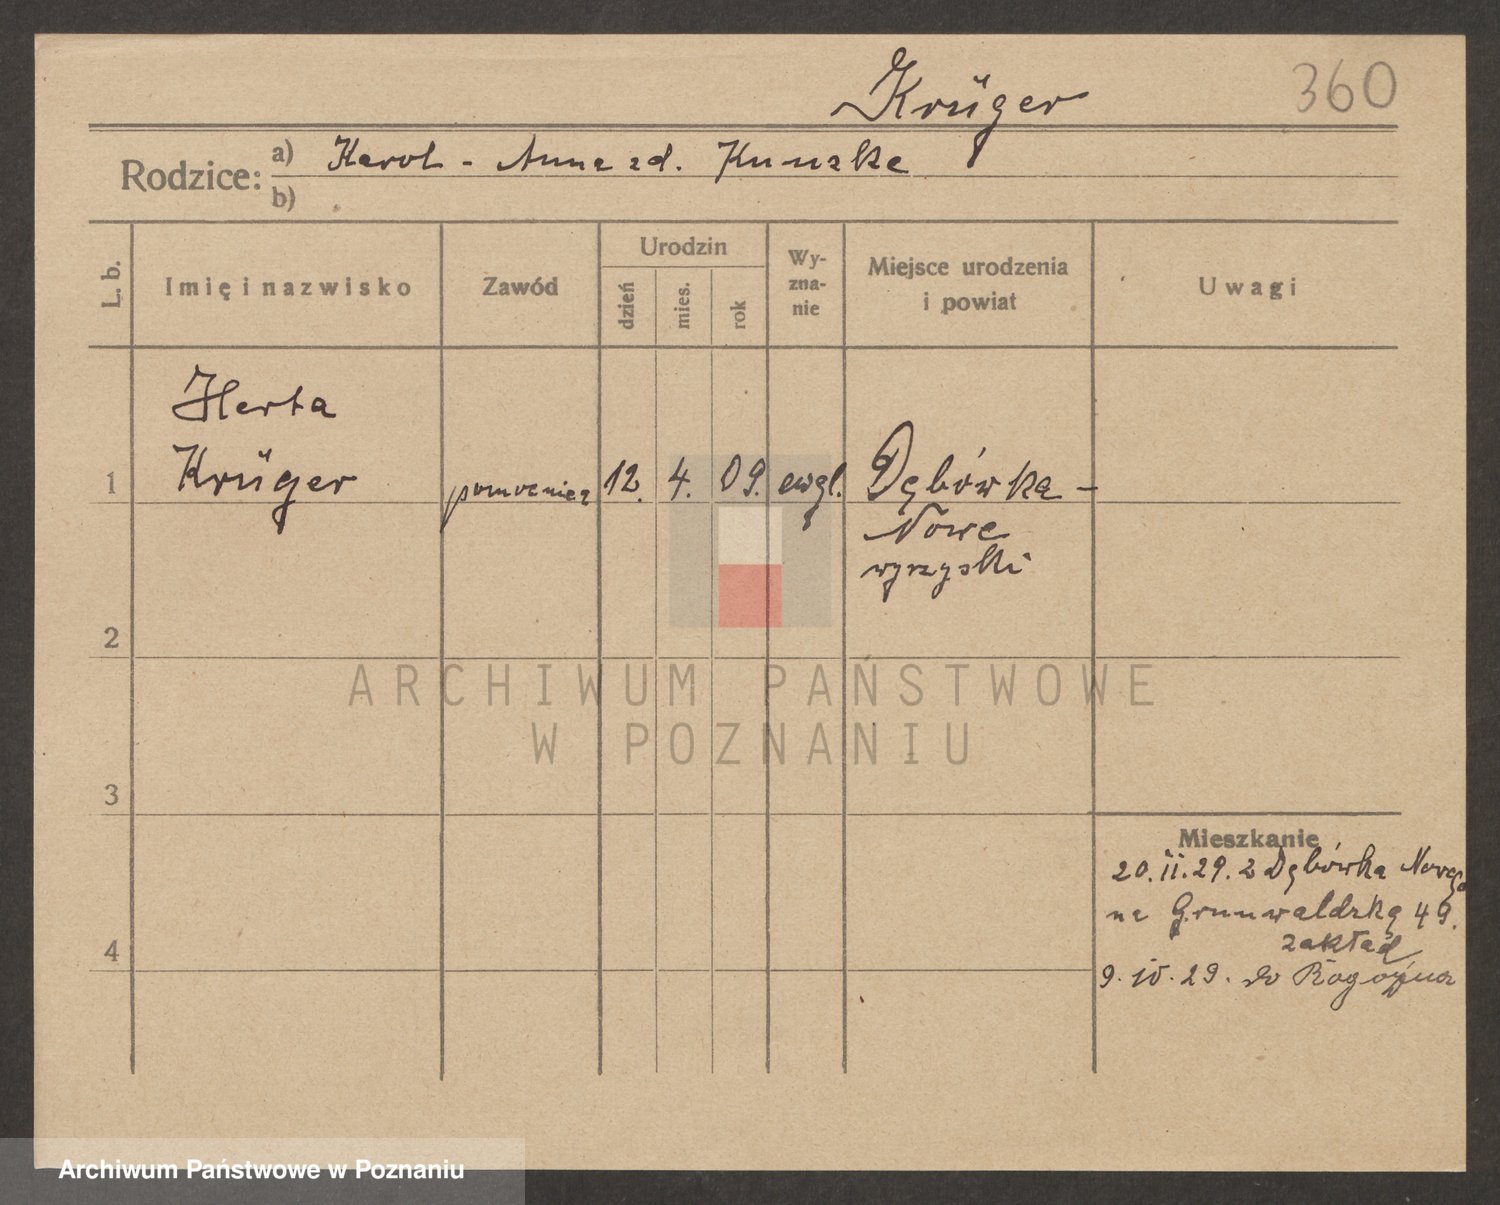 Krüger
360
Rodzice: a) Karol - Anna zd. Kunzke
b)
L. b.
Imię i nazwisko
Zawód
Urodzin
dzień
mies.
rok
Wy-
zna-
nie
Miejsce urodzenia
i powiat
Uwagi
Herta
1 Krüger pomocnica 12. 4. 09. ewgl. Dębówka -
Nowe
wyrzyski
2
ARCHIWUM PAŃSTWOWE
W POZNANIU
3
Mieszkanie
20.II.29. z Dębówka Nowego
na Grunwaldzką 49.
zakład
4
9. IV. 29. do Rogoźna
Archiwum Państwowe w Poznaniu